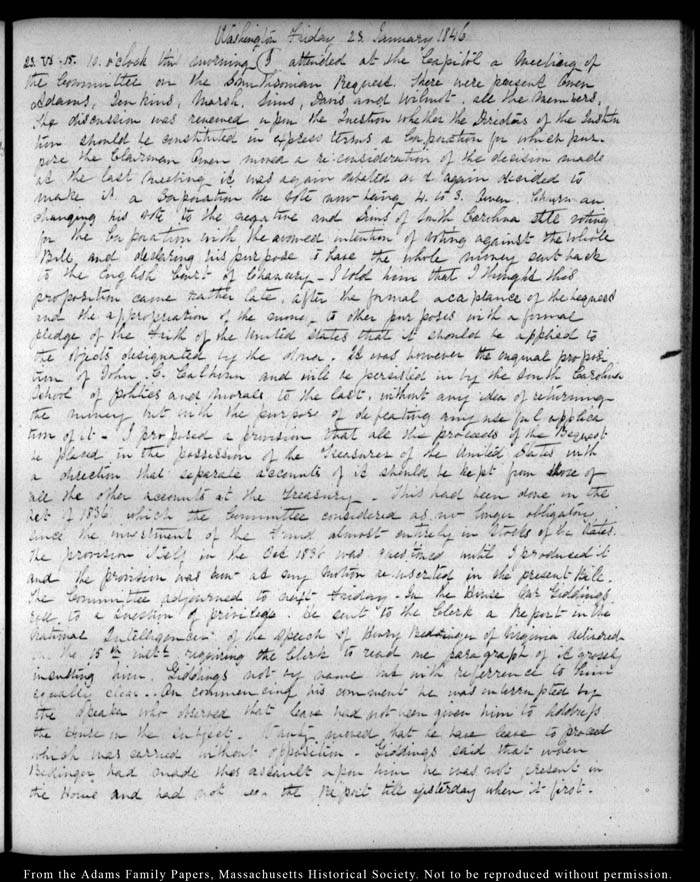 Washington Friday 23. January 1846.
23. VI.-15. 10. o'clock this morning I attended at the Capitol a meeting of
the Committee on the Smithsonian Bequest. There were present Owen
Adams, Jenkins, Marsh, Sims, Davis and Wilmot, all the members.
The discussion was renewed upon the Question whether the Directors of the Institu
tion should be constituted in express terms a Corporation for which pur-
pose the Chairman Owen moved a re-consideration of the decision made
at the last meeting it was again debated and again decided to
make it a Corporation the vote now being 4. to 3. Owen, Chairman
changing his vote to the negative and Sims of South Carolina still voting
for the Corporation with the avowed intention of voting against the whole
Bill, and declaring his purpose to have the whole money sent back
to the English Court of Chancery - I told him that I thought this
proposition came rather late, after the formal acceptance of the bequest
and the appropriation of the money, to other purposes with a formal
pledge of the Faith of the United States that it should be applied to
the objects designated by the donor. It was however the original proposi
tion of John C. Calhoun and will be persisted in by the South Carolina
School of politics and morals to the last, without any idea of returning
the money but with the purpose of defeating any useful applica
tion of it - I proposed a provision that all the proceeds of the Bequest
be placed in the possession of the Treasurer of the United States with
a direction that separate accounts of it should be kept from those of
all the other accounts at the Treasury - This had been done in the
act of 1836 which the Committee considered as no longer obligatory
since the investment of the Fund almost entirely in Stocks of the States.
The provision itself in the Act 1836 was questioned until I produced it
and the provision was at my motion re-inserted in the present Bill.
The Committee adjourned to next Friday - In the House Mr Giddings
rose to a Question of privilege he sent to the Clerk a Report in the
National Intelligencer of the speech of Henry Bedinger of Virginia delivered
on the 15th inst. requiring the Clerk to read one paragraph of it grossly
insulting him, Giddings not by name but with referrence to him
equally clear. On commencing his comment he was interrupted by
the Speaker who observed that leave had not been given him to address
the House on the subject. moved that he have leave to proceed
which was carried without opposition - Giddings said that when
Bedinger had made this assault upon him he was not present in
the House and had not seen the Report till yesterday when it first.
From the Adams Family Papers, Massachusetts Historical Society. Not to be reproduced without permission.